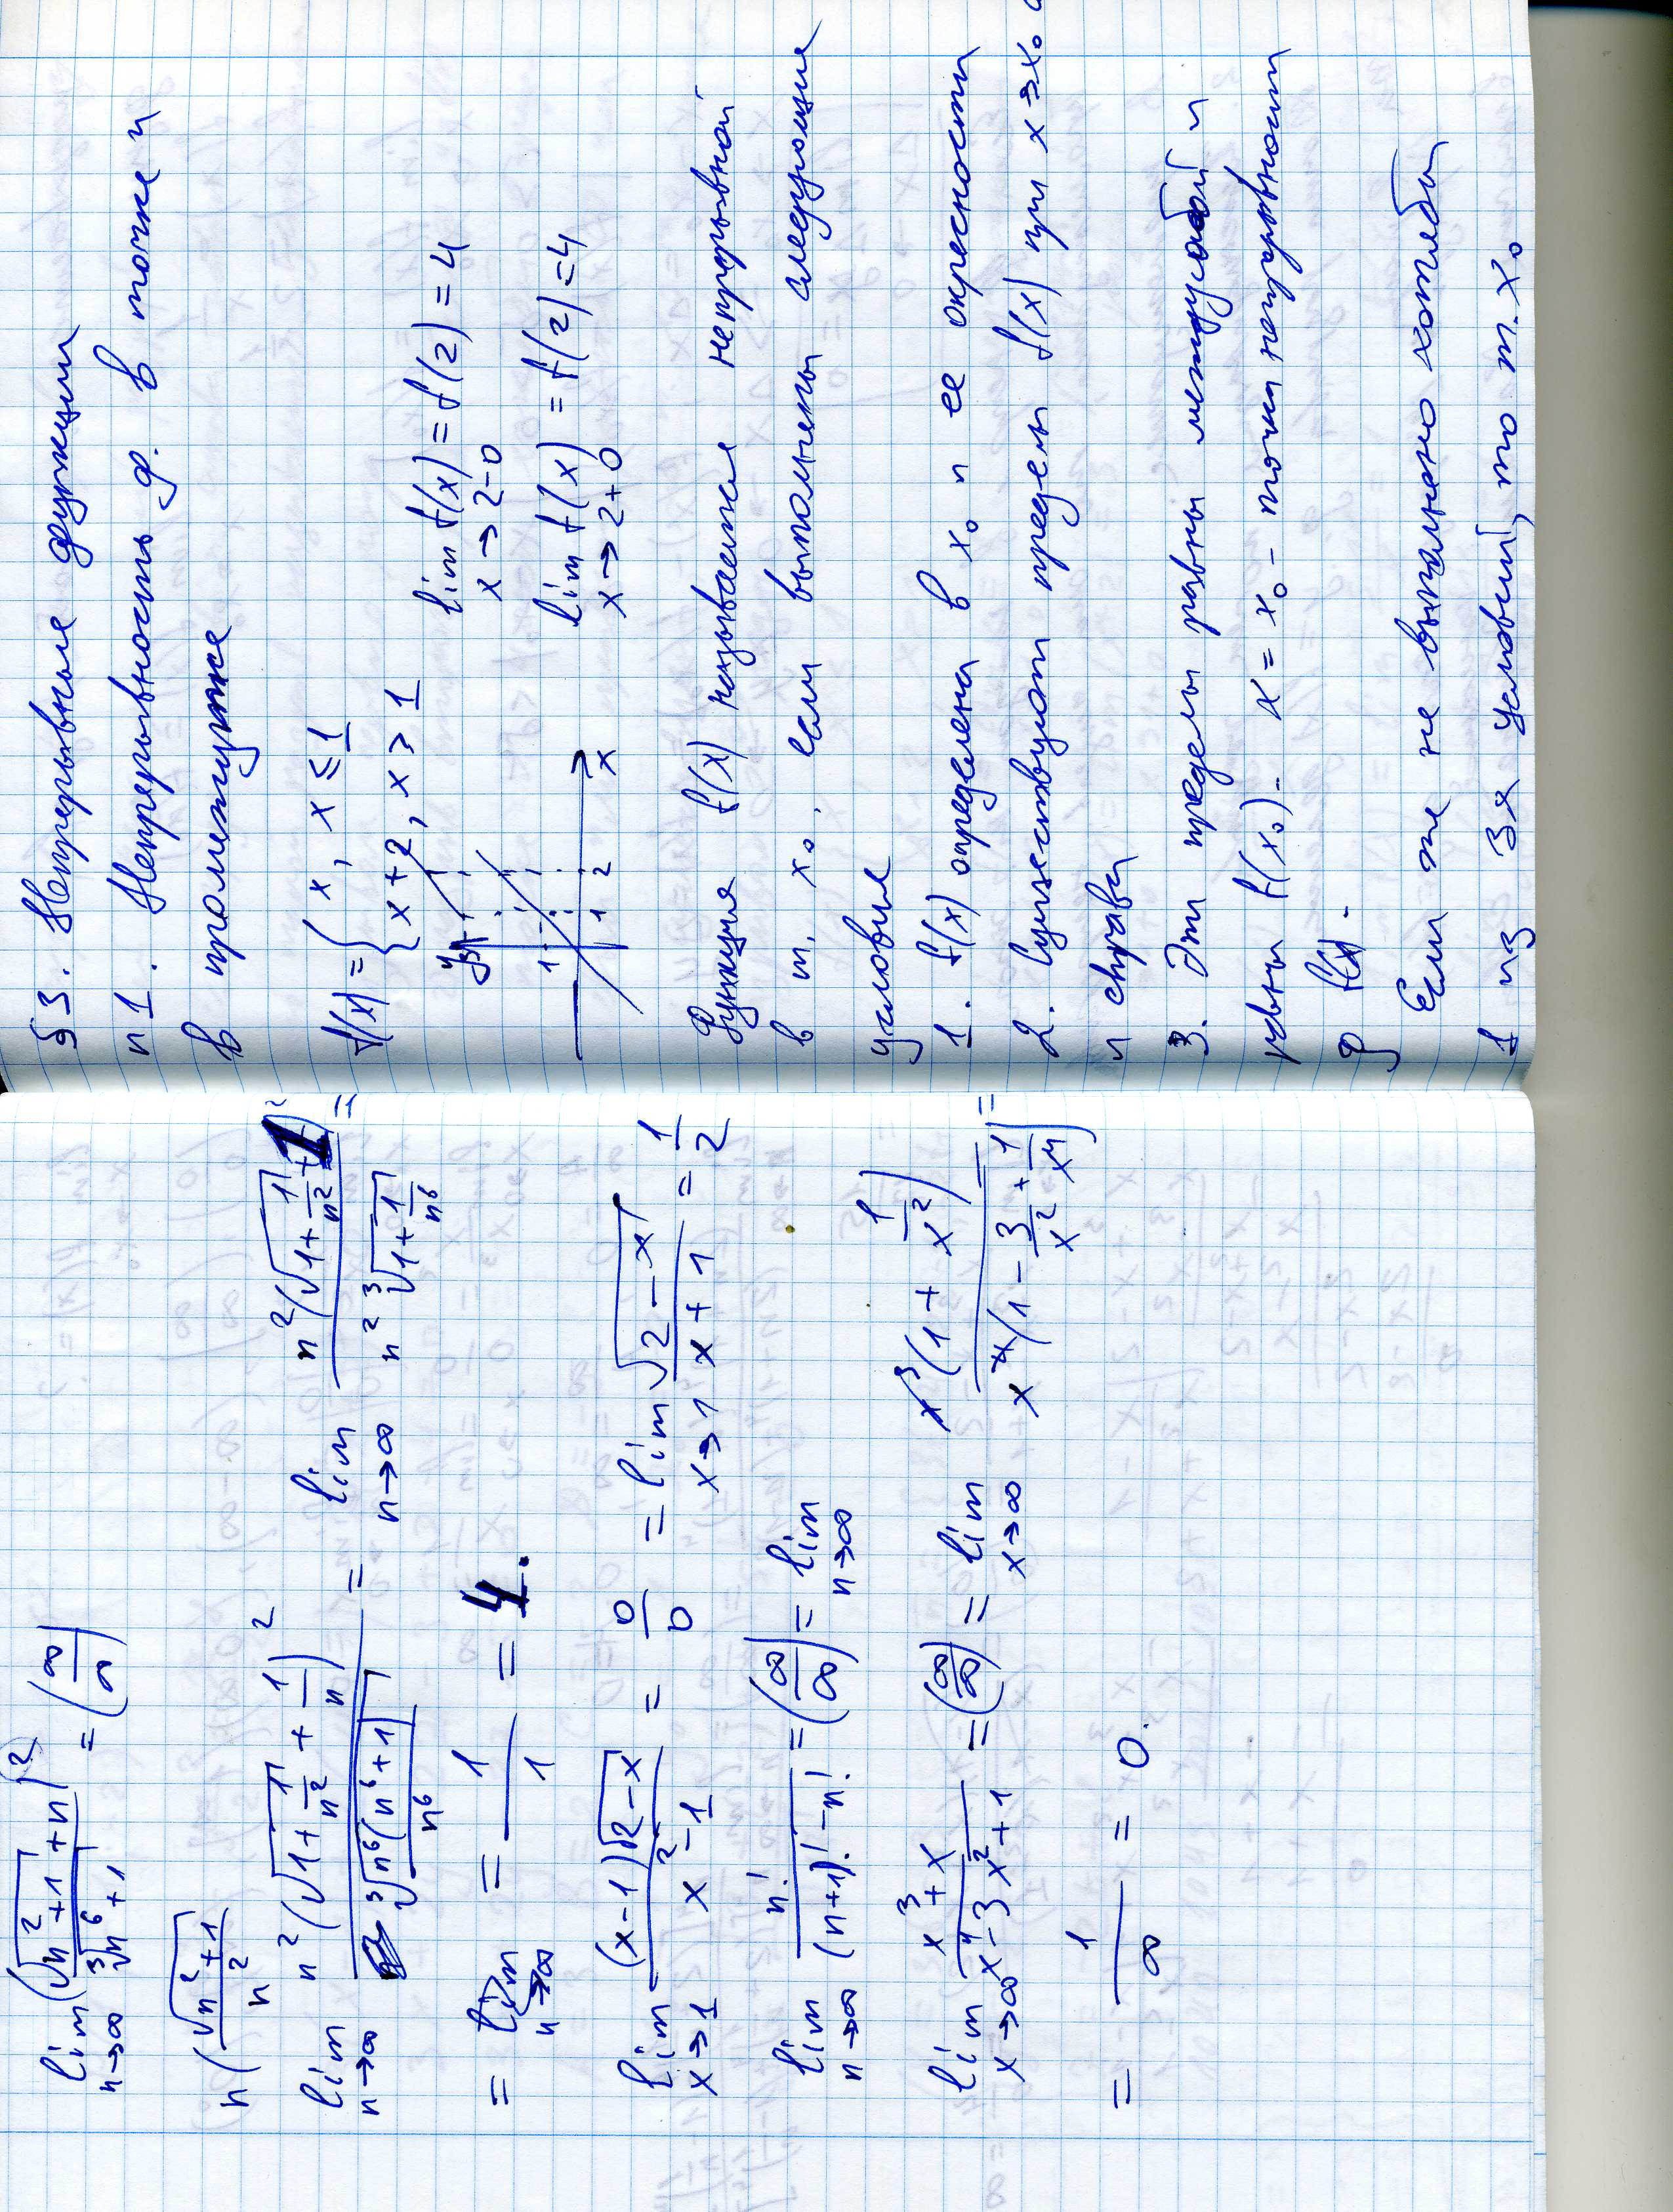 lim (√(n²+1) + n)² / ³√(n⁶+1) = (∞/∞)
n→∞
n(√((n²+1)/n²)
lim n²(√(1+1/n²) + 1/n)² / ³√(n⁶(n⁶+1)/n⁶) = lim n²(√(1+1/n²) + 1)² / n² ³√(1+1/n⁶) =
n→∞ n→∞
= lim = 1/1 = 4.
n→∞
lim (x-1)√(2-x) / x²-1 = 0/0 = lim √(2-x) / x+1 = 1/2
x→1 x→1
lim n! / (n+1)! - n! = (∞/∞) = lim
n→∞ n→∞
lim x³+x / x⁴-3x²+1 = (∞/∞) = lim x³(1 + 1/x²) / x⁴(1 - 3/x² + 1/x⁴) =
x→∞ x→∞
= 1/∞ = 0.
§3. Непрерывные функции
п1. Непрерывность ф. в точке и
в промежутке
f(x) = { x, x ≤ 1
x+2, x > 1
lim f(x) = f(2) = 4
x→2-0
lim f(x) = f(2) = 4
x→2+0
y 3 1 1 2 x
Функция f(x) называется непрерывной
в т. x₀, если выполнены следующие
условия
1. f(x) определена в x₀ и ее окрестности
2. Существуют пределы f(x) при x→x₀
и справа
3. Эти пределы равны между собой и
равны f(x₀). x = x₀ - точки непрерывности
ф f(x).
Если же не выполнено хотябы
1 из 3х условий, то т. x₀